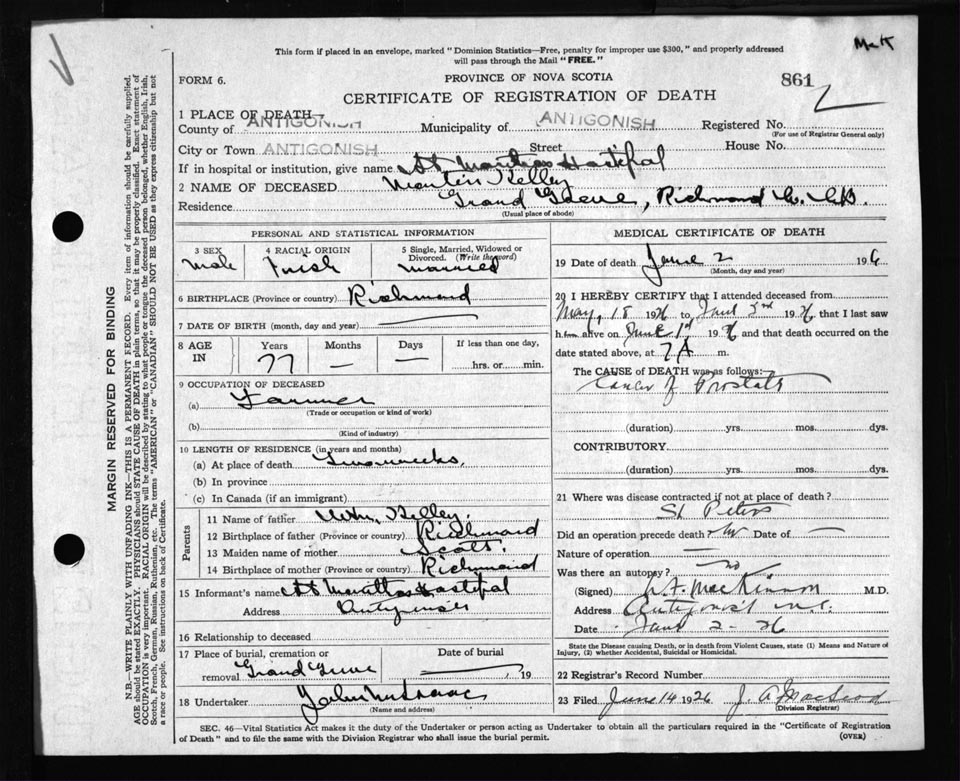 This form if placed in an envelope, marked "Dominion Statistics—Free, penalty for improper use $300," and properly addressed
will pass through the Mail "FREE."
McK
FORM 6.
PROVINCE OF NOVA SCOTIA
861
CERTIFICATE OF REGISTRATION OF DEATH
1 PLACE OF DEATH—
County of ANTIGONISH Municipality of ANTIGONISH Registered No.
(For use of Registrar General only)
City or Town ANTIGONISH Street House No.
If in hospital or institution, give name St Marthas Hospital
2 NAME OF DECEASED Martin Kelley
Residence Grand Greve, Richmond Co.
(Usual place of abode)
PERSONAL AND STATISTICAL INFORMATION
3 SEX
Male
4 RACIAL ORIGIN
Irish
5 Single, Married, Widowed or
Divorced. (Write the word)
Married
6 BIRTHPLACE (Province or country) Richmond
7 DATE OF BIRTH (month, day and year)
8 AGE
IN
Years
77
Months
—
Days
—
If less than one day,
hrs. or min.
9 OCCUPATION OF DECEASED
(a) Farmer
(Trade or occupation or kind of work)
(b)
(Kind of industry)
10 LENGTH OF RESIDENCE (in years and months)
(a) At place of death Two weeks
(b) In province
(c) In Canada (if an immigrant)
Parents
11 Name of father Wm. Kelley.
12 Birthplace of father (Province or country) Richmond
13 Maiden name of mother Scott.
14 Birthplace of mother (Province or country) Richmond
15 Informant's name St Marthas Hospital
Address Antigonish
16 Relationship to deceased
17 Place of burial, cremation or
removal Grand Greve
Date of burial
, 19
18 Undertaker John McIsaac
(Name and address)
MEDICAL CERTIFICATE OF DEATH
19 Date of death June 2 1926
(Month, day and year)
20 I HEREBY CERTIFY that I attended deceased from
May, 18 1926 to June 2nd 1926 that I last saw
him alive on June 1st 1926 and that death occurred on the
date stated above, at 7 A m.
The CAUSE of DEATH was as follows:—
Cancer of Prostate
(duration) yrs. mos. dys.
CONTRIBUTORY
(duration) yrs. mos. dys.
21 Where was disease contracted if not at place of death?
St Peters
Did an operation precede death? No Date of —
Nature of operation —
Was there an autopsy? No
(Signed) MacKinnon M.D.
Address Antigonish N.S.
Date June 2 - 26
State the Disease causing Death, or in death from Violent Causes, state (1) Means and Nature of
Injury, (2) whether Accidental, Suicidal or Homicidal.
22 Registrar's Record Number
23 Filed June 14 1926 J. A. MacLeod
(Division Registrar)
SEC. 46—Vital Statistics Act makes it the duty of the Undertaker or person acting as Undertaker to obtain all the particulars required in the "Certificate of Registration
of Death" and to file the same with the Division Registrar who shall issue the burial permit.
(OVER)
MARGIN RESERVED FOR BINDING
N.B.—WRITE PLAINLY WITH UNFADING INK—THIS IS A PERMANENT RECORD. Every item of information should be carefully supplied.
AGE should be stated EXACTLY. PHYSICIANS should STATE CAUSE OF DEATH in plain terms, so that it may be properly classified. Exact statement of
OCCUPATION is very important. RACIAL ORIGIN will be described by stating of what people or tongue the deceased person belonged, whether English, Irish,
Scotch, French, German, Russian, Ruthenian, etc. The terms "AMERICAN" or "CANADIAN" SHOULD NOT BE USED as they express citizenship but not
a race or people. See instructions on back of Certificate.